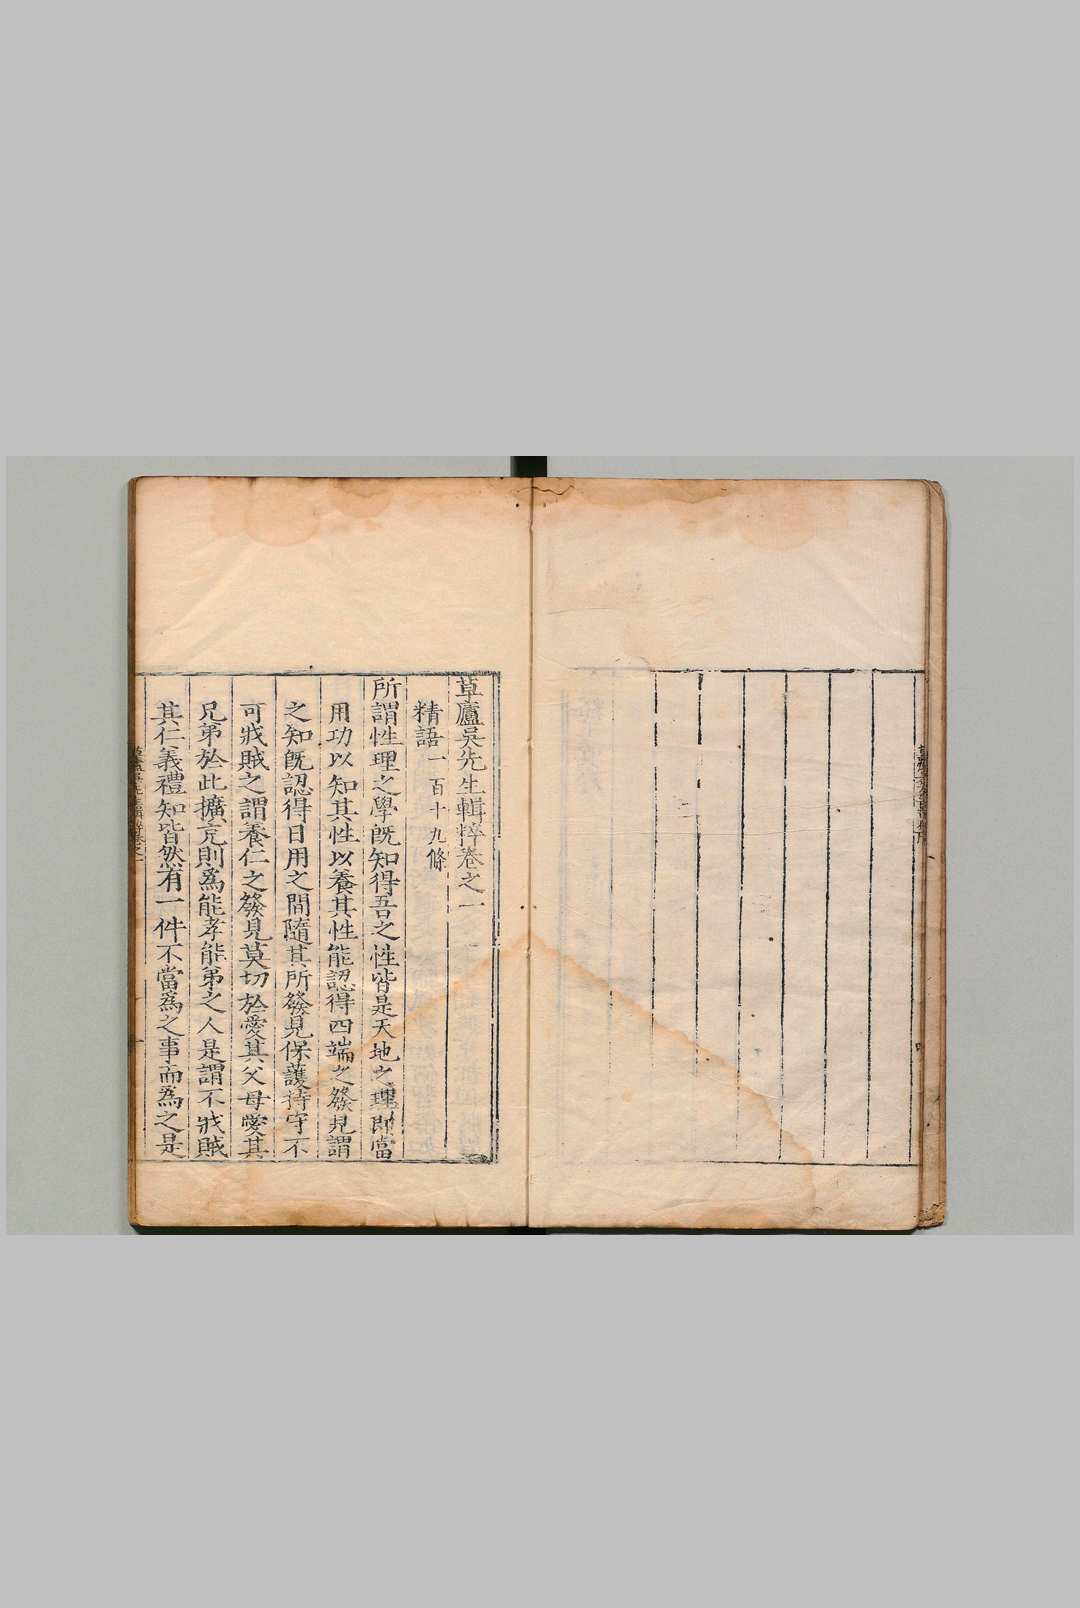 草廬吳先生輯粹卷之一
精語一百十九條
所謂性理之學旣知得吾之性皆是天地之理即當
用功以知其性以養其性能認得四端之發見謂
之知旣認得日用之間隨其所發見保護持守不
可戕賊之謂養仁之發見莫切於愛其父母愛其
兄弟於此擴充則爲能孝能弟之人是謂不戕賊
其仁義禮知皆然有一件不當爲之事而爲之是